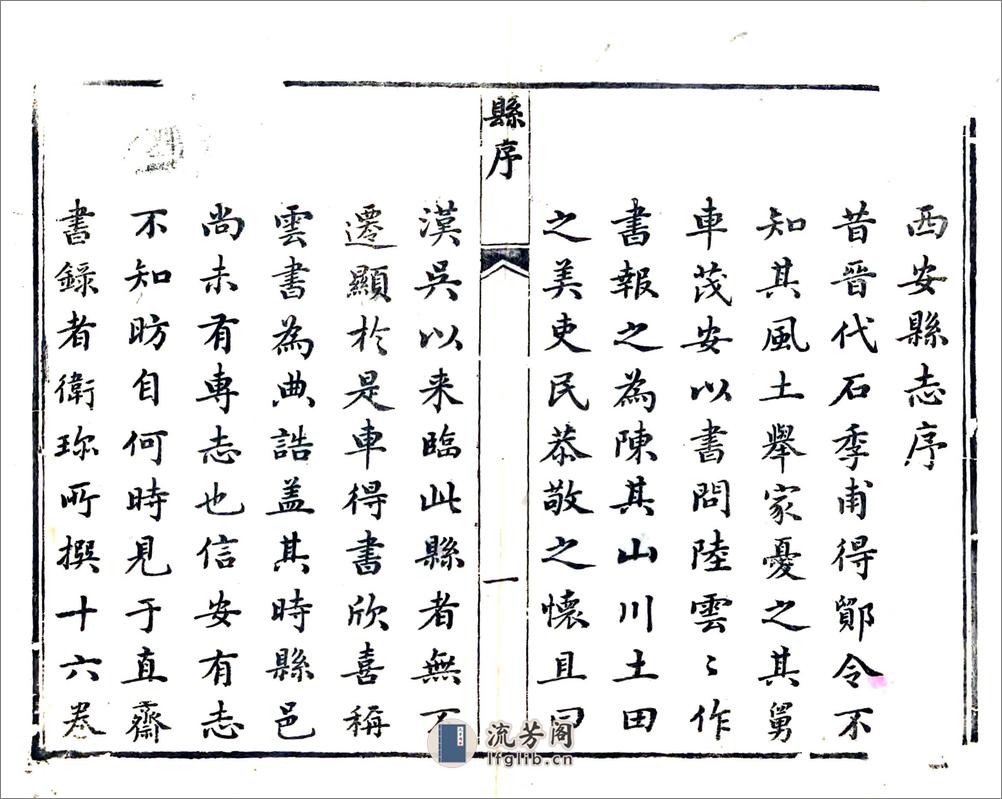 西安縣志序
昔晉代石季甫得鄮令不
知其風土舉家憂之其舅
車茂安以書問陸雲〻作
書報之為陳其山川土田
之美吏民恭敬之懷且曰
縣序
一
漢吳以来臨此縣者無不
遷顯於是車得書欣喜稱
雲書為典誥盖其時縣邑
尚未有專志也信安有志
不知昉自何時見于直齋
書録者衛玠所撰十六卷
流芳阁
lfglib.cn